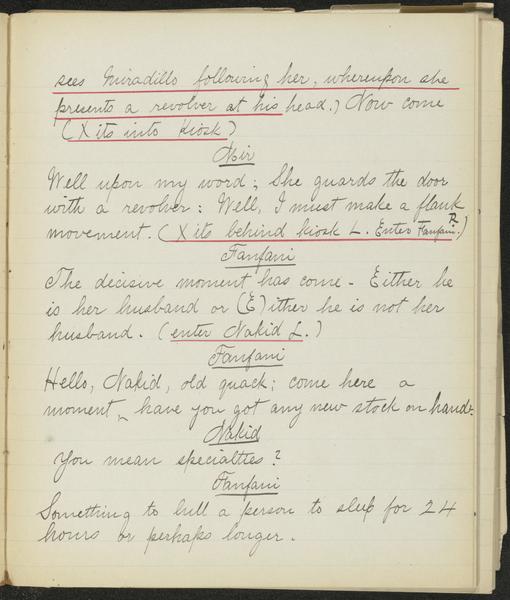 sees Miradillo following her, whereupon she
presents a revolver at his head.) Now come
(Xits into Kiosk)
Mir
Well upon my word; She guards the door
with a revolver: Well, I must make a flank
movement. (Xits behind kiosk L. Enter Fanfani R.)
Fanfani
The decisive moment has come - Either he
is her husband or (E)ither he is not her
husband. (enter Nakid L.)
Fanfani
Hello, Nakid, old quack; come here a
moment, have you got any new stock on hand.
Nakid
You mean specialties?
Fanfani
Something to lull a person to sleep for 24
hours or perhaps longer.